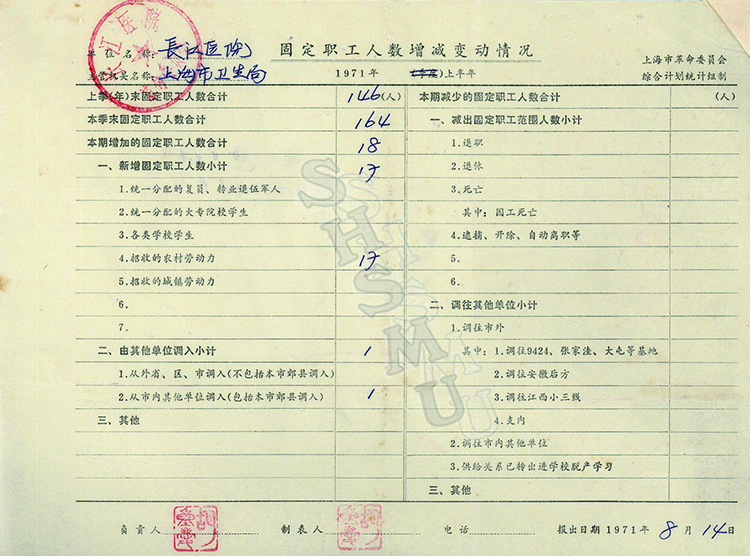 固定职工人数增减变动情况
单位名称: 長江医院
上海市革命委员会
主管机关名称: 上海市卫生局
1971年 (季度)上半年
综合计划统计组制
上季(年)末固定职工人数合计 146(人)
本期减少的固定职工人数合计 (人)
本季末固定职工人数合计 164
一、减出固定职工范围人数小计
本期增加的固定职工人数合计 18
1.退职
一、新增固定职工人数小计 17
2.退休
1.统一分配的复员、转业退伍军人
3.死亡
2.统一分配的大专院校学生
其中:因工死亡
3.各类学校学生
4.逮捕、开除、自动离职等
4.招收的农村劳动力 17
5.
5.招收的城镇劳动力
6.
6.
二、调往其他单位小计
7.
1.调往市外
二、由其他单位调入小计 1
其中:1.调往9424、张家洼、大屯等基地
1.从外省、区、市调入(不包括本市郊县调入)
2.调往安徽后方
2.从市内其他单位调入(包括本市郊县调入) 1
3.调往江西小三线
三、其他
4.支内
2.调往市内其他单位
3.供给关系已转出进学校脱产学习
三、其他
负责人 制表人 电话 报出日期1971年8月14日
SHSMU